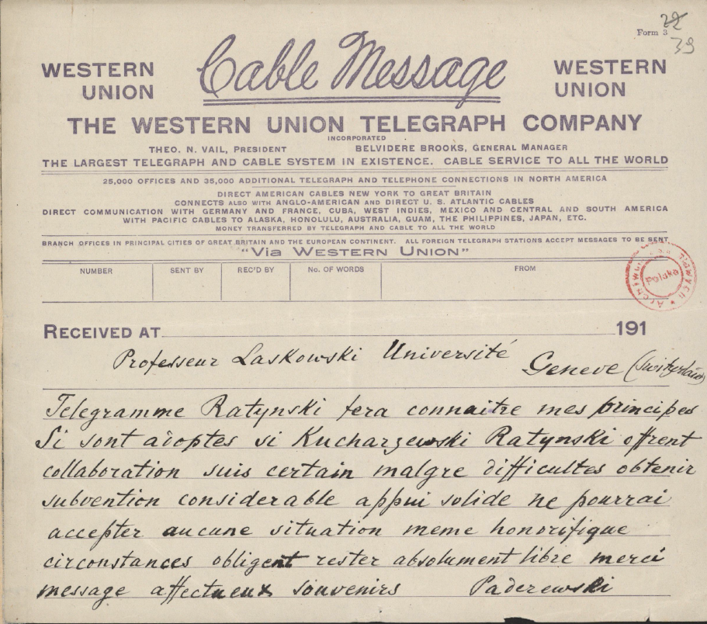 Form 3
22
39
WESTERN UNION
Cable Message
WESTERN UNION
THE WESTERN UNION TELEGRAPH COMPANY
INCORPORATED
THEO. N. VAIL, PRESIDENT BELVIDERE BROOKS, GENERAL MANAGER
THE LARGEST TELEGRAPH AND CABLE SYSTEM IN EXISTENCE. CABLE SERVICE TO ALL THE WORLD
25,000 OFFICES AND 35,000 ADDITIONAL TELEGRAPH AND TELEPHONE CONNECTIONS IN NORTH AMERICA
DIRECT AMERICAN CABLES NEW YORK TO GREAT BRITAIN
CONNECTS ALSO WITH ANGLO-AMERICAN AND DIRECT U. S. ATLANTIC CABLES
DIRECT COMMUNICATION WITH GERMANY AND FRANCE, CUBA, WEST INDIES, MEXICO AND CENTRAL AND SOUTH AMERICA
WITH PACIFIC CABLES TO ALASKA, HONOLULU, AUSTRALIA, GUAM, THE PHILIPPINES, JAPAN, ETC.
MONEY TRANSFERRED BY TELEGRAPH AND CABLE TO ALL THE WORLD
BRANCH OFFICES IN PRINCIPAL CITIES OF GREAT BRITAIN AND THE EUROPEAN CONTINENT. ALL FOREIGN TELEGRAPH STATIONS ACCEPT MESSAGES TO BE SENT
"VIA WESTERN UNION"
NUMBER SENT BY REC'D BY No. OF WORDS FROM
Polska
RECEIVED AT 191
Professeur Laskowski Université Geneve (Switzerland)
Telegramme Ratynski fera connaitre mes principes
Si sont adoptes si Kucharzewski Ratynski offrent
collaboration suis certain malgre difficultes obtenir
subvention considerable appui solide ne pourrai
accepter aucune situation meme honorifique
circonstances obligent rester absolument libre merci
message affectueux souvenirs Paderewski